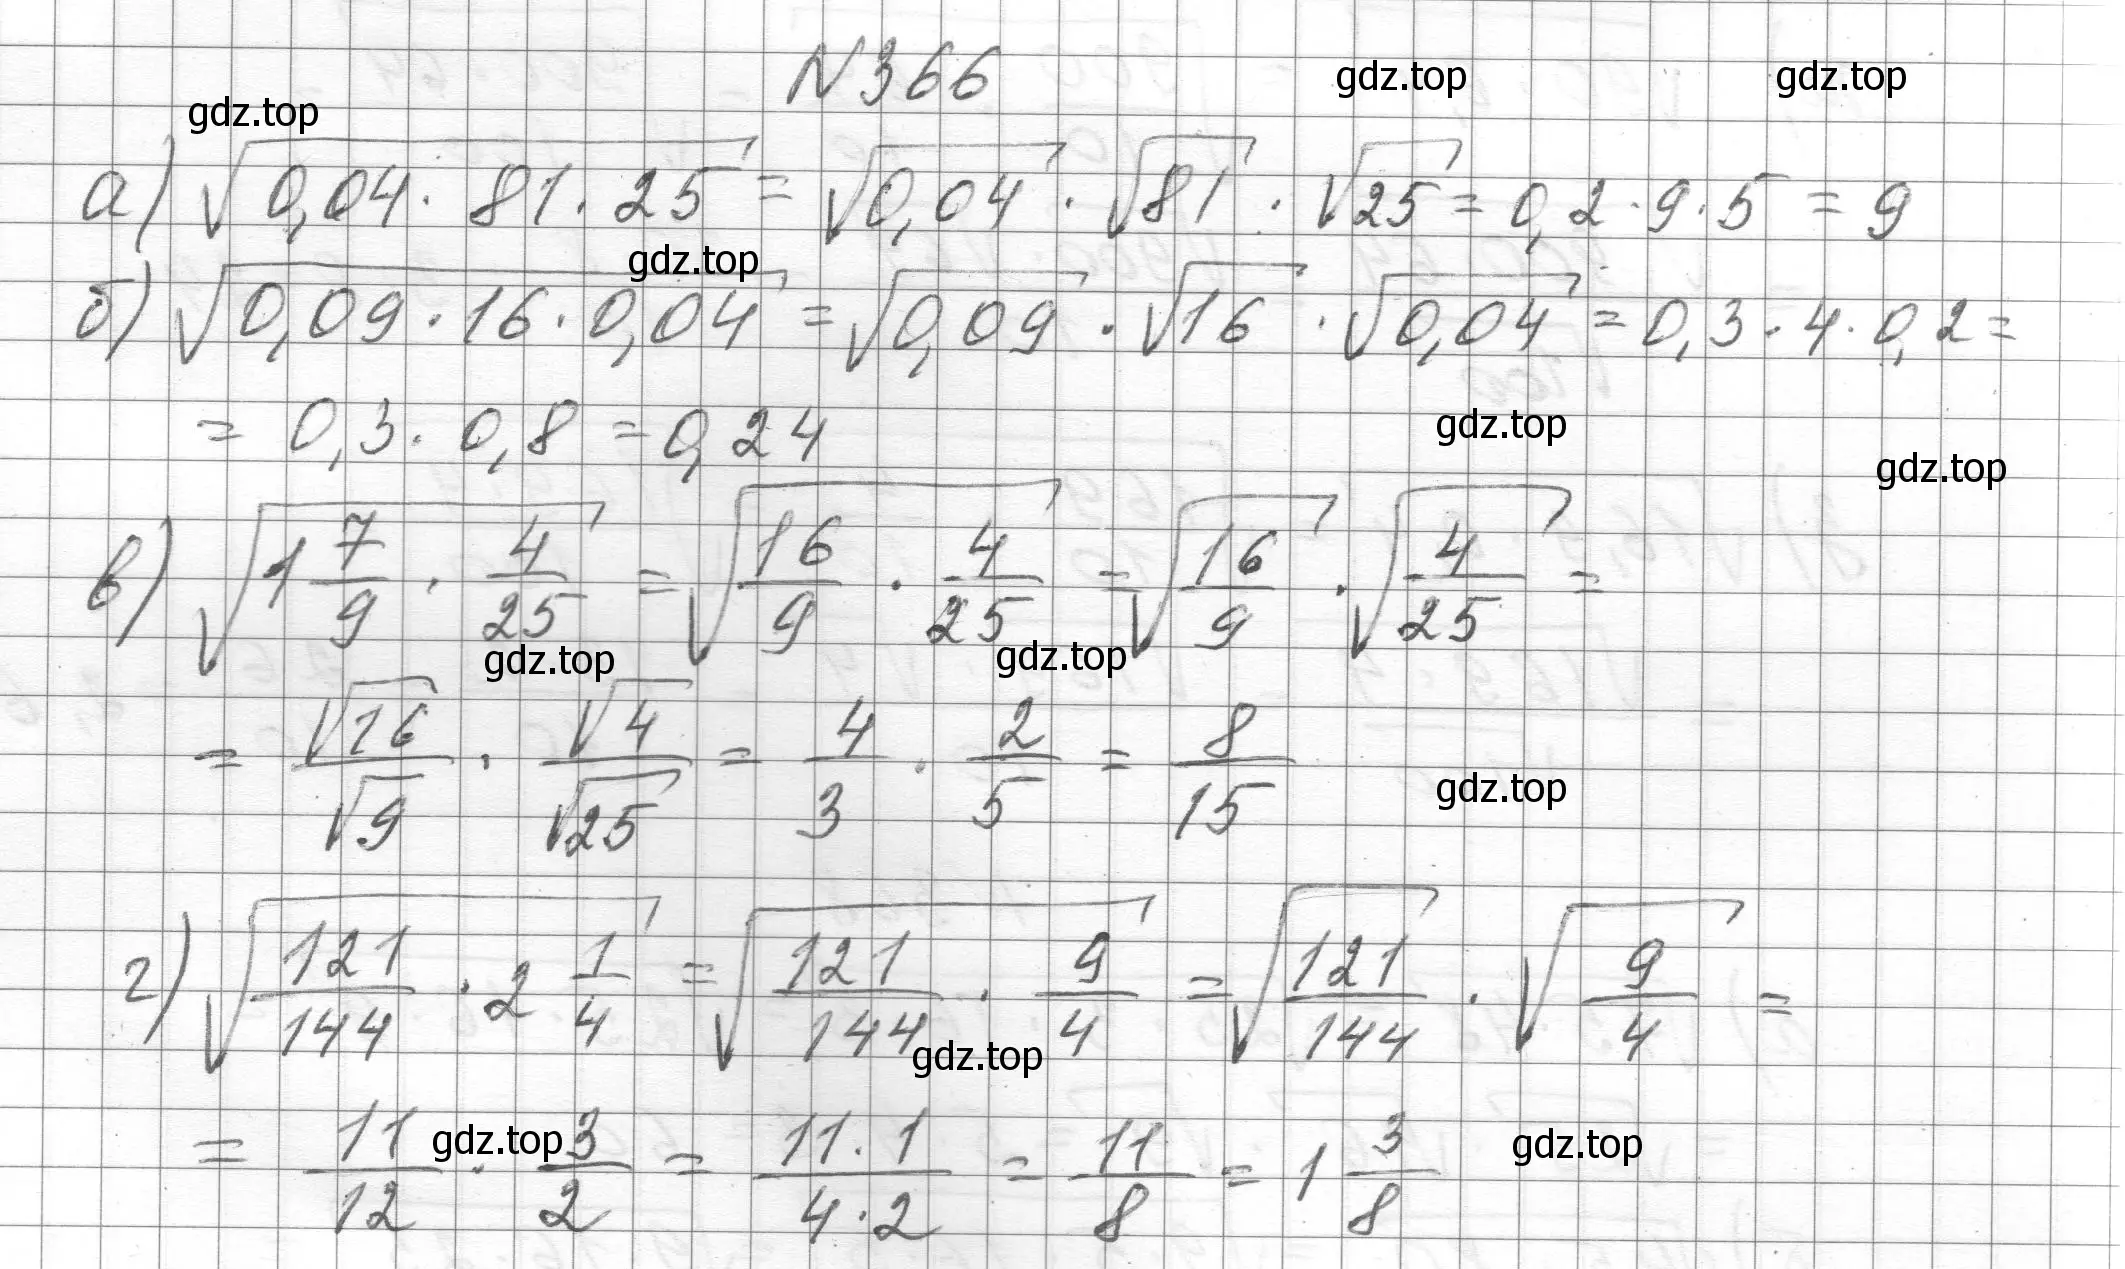 N 366
gdz.top gdz.top
gdz.top
а) √(0,04 · 81 · 25) = √0,04 · √81 · √25 = 0,2 · 9 · 5 = 9
gdz.top
б) √(0,09 · 16 · 0,04) = √0,09 · √16 · √0,04 = 0,3 · 4 · 0,2 =
= 0,3 · 0,8 = 0,24
gdz.top
gdz.top
в) √(1 7/9 · 4/25) = √(16/9 · 4/25) = √(16/9) · √(4/25) =
gdz.top gdz.top
= √16/√9 · √4/√25 = 4/3 · 2/5 = 8/15
gdz.top
г) √(121/144 · 2 1/4) = √(121/144 · 9/4) = √(121/144) · √(9/4) =
gdz.top
= 11/12 · 3/2 = (11 · 1)/(4 · 2) = 11/8 = 1 3/8
gdz.top gdz.top